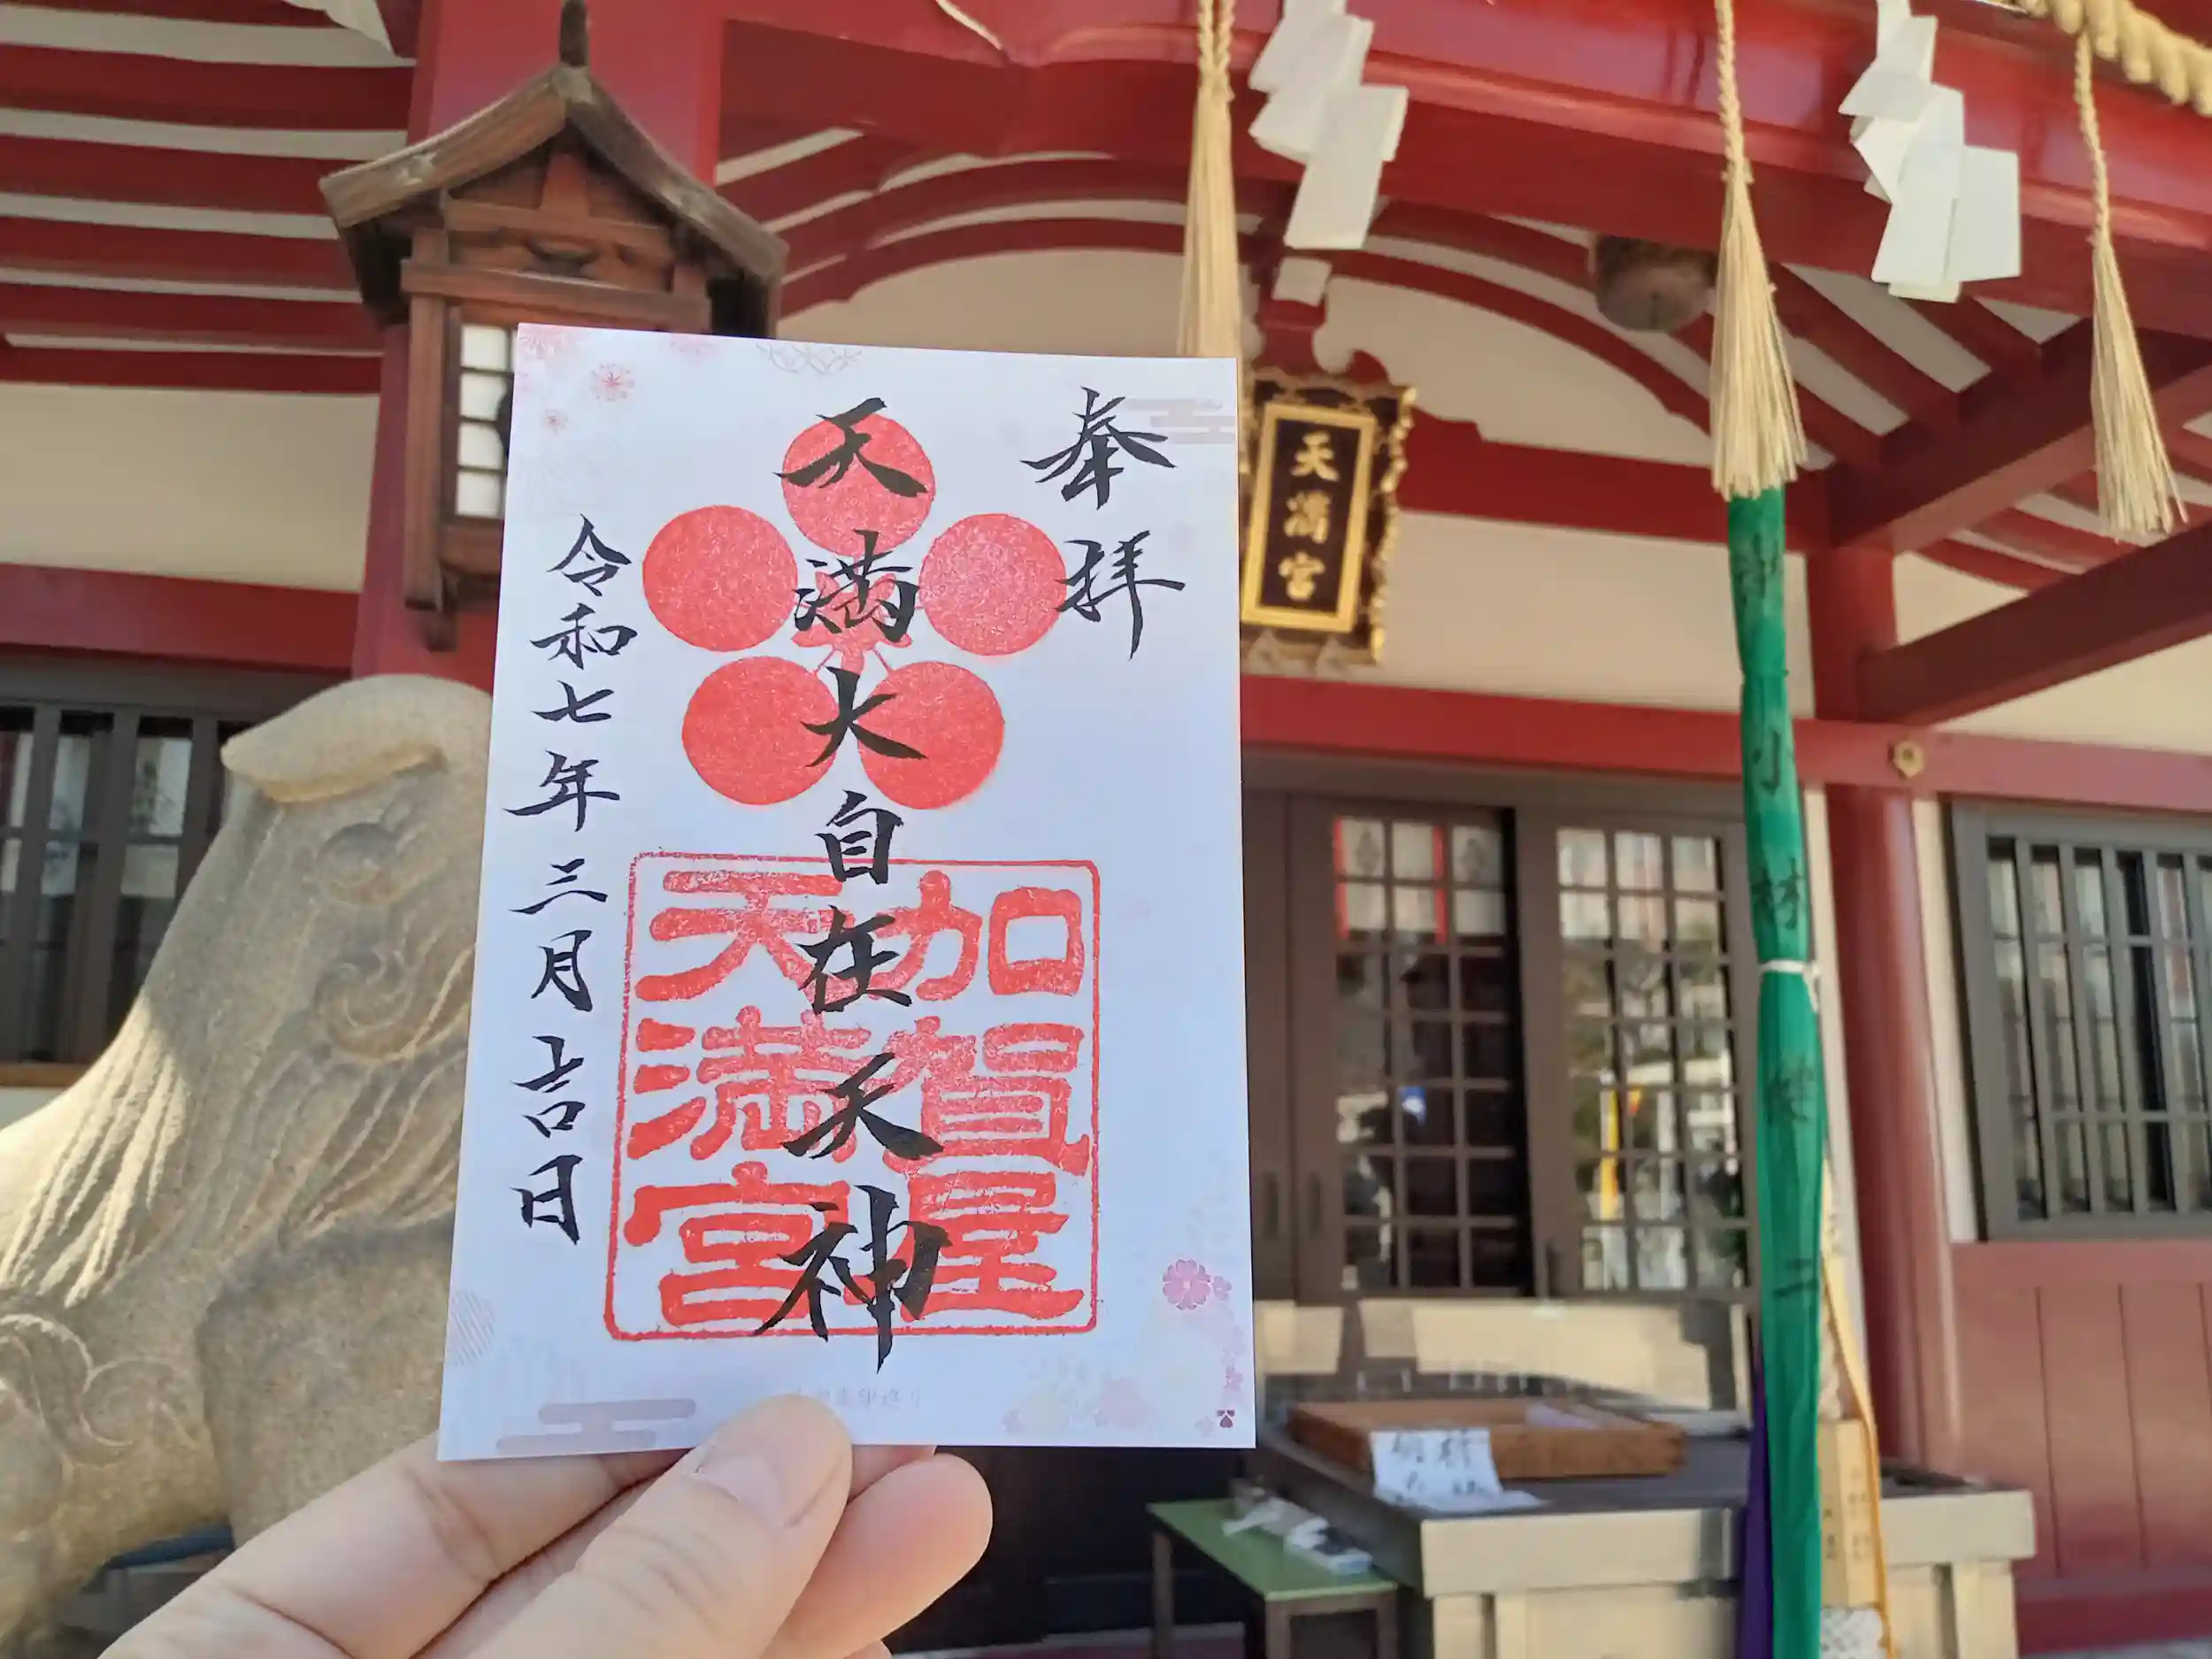 奉拝
天満大自在天神
加賀屋
天満宮
令和七年三月吉日
天満宮